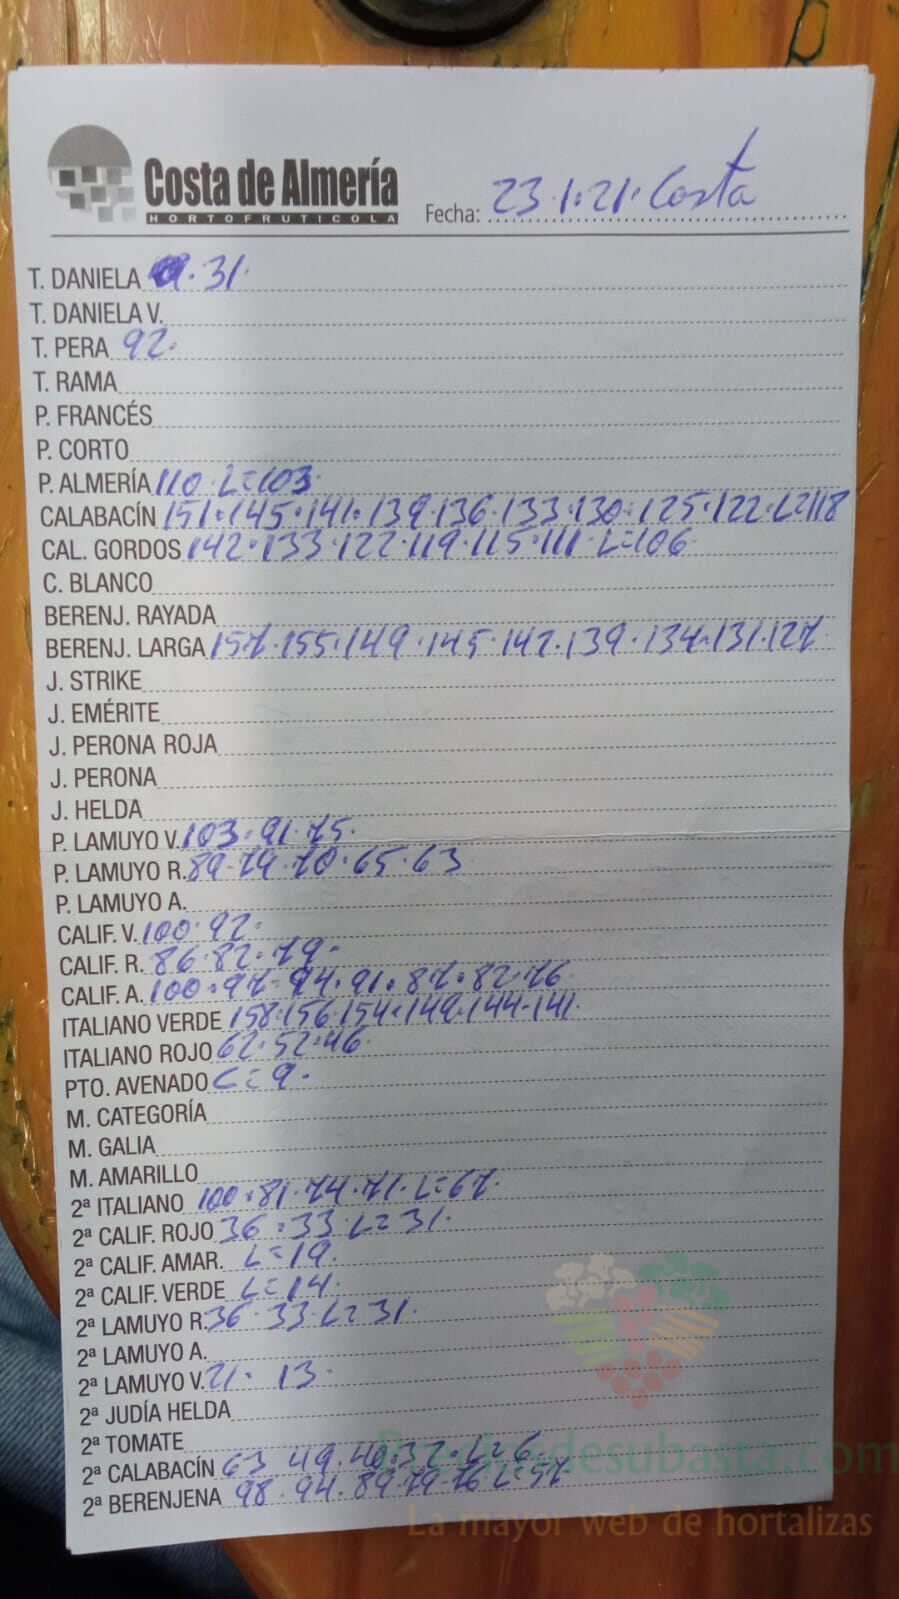 Costa de Almería
HORTOFRUTICOLA
Fecha: 23.1.21. Costa
T. DANIELA 31.
T. DANELA V.
T. PERA 92.
T. RAMA
P. FRANCÉS
P. CORTO
P. ALMERÍA 110. L=103.
CALABACÍN 151.145.141.139.136.133.130.125.122.L=118
CAL. GORDOS 142.133.122.119.115.111.L=106
C. BLANCO
BERENJ. RAYADA
BERENJ. LARGA 157.155.149.145.142.139.134.131.127.
J. STRIKE
J. EMÉRITE
J. PERONA ROJA
J. PERONA
J. HELDA
P. LAMUYO V. 103.91.75.
P. LAMUYO R. 89.79.70.65.63
P. LAMUYO A.
CALIF. V. 100.92.
CALIF. R. 86.82.79.
CALIF. A. 100.97.94.91.87.82.76
ITALIANO VERDE 158.156.154.149.144.141.
ITALIANO ROJO 62.52.46.
PTO. AVENADO L=9.
M. CATEGORÍA
M. GALIA
M. AMARILLO
2ª ITALIANO 100.81.74.71.L=67.
2ª CALIF. ROJO 36.33.L=31.
2ª CALIF. AMAR. L=19.
2ª CALIF. VERDE L=14.
2ª LAMUYO R. 36.33.L=31.
2ª LAMUYO A.
2ª LAMUYO V. 21. 13.
2ª JUDÍA HELDA
2ª TOMATE
2ª CALABACÍN 63 49.40.32.L=6
2ª BERENJENA 98.94.89.79.76 L=57
Preciosdesubasta.com
La mayor web de hortalizas